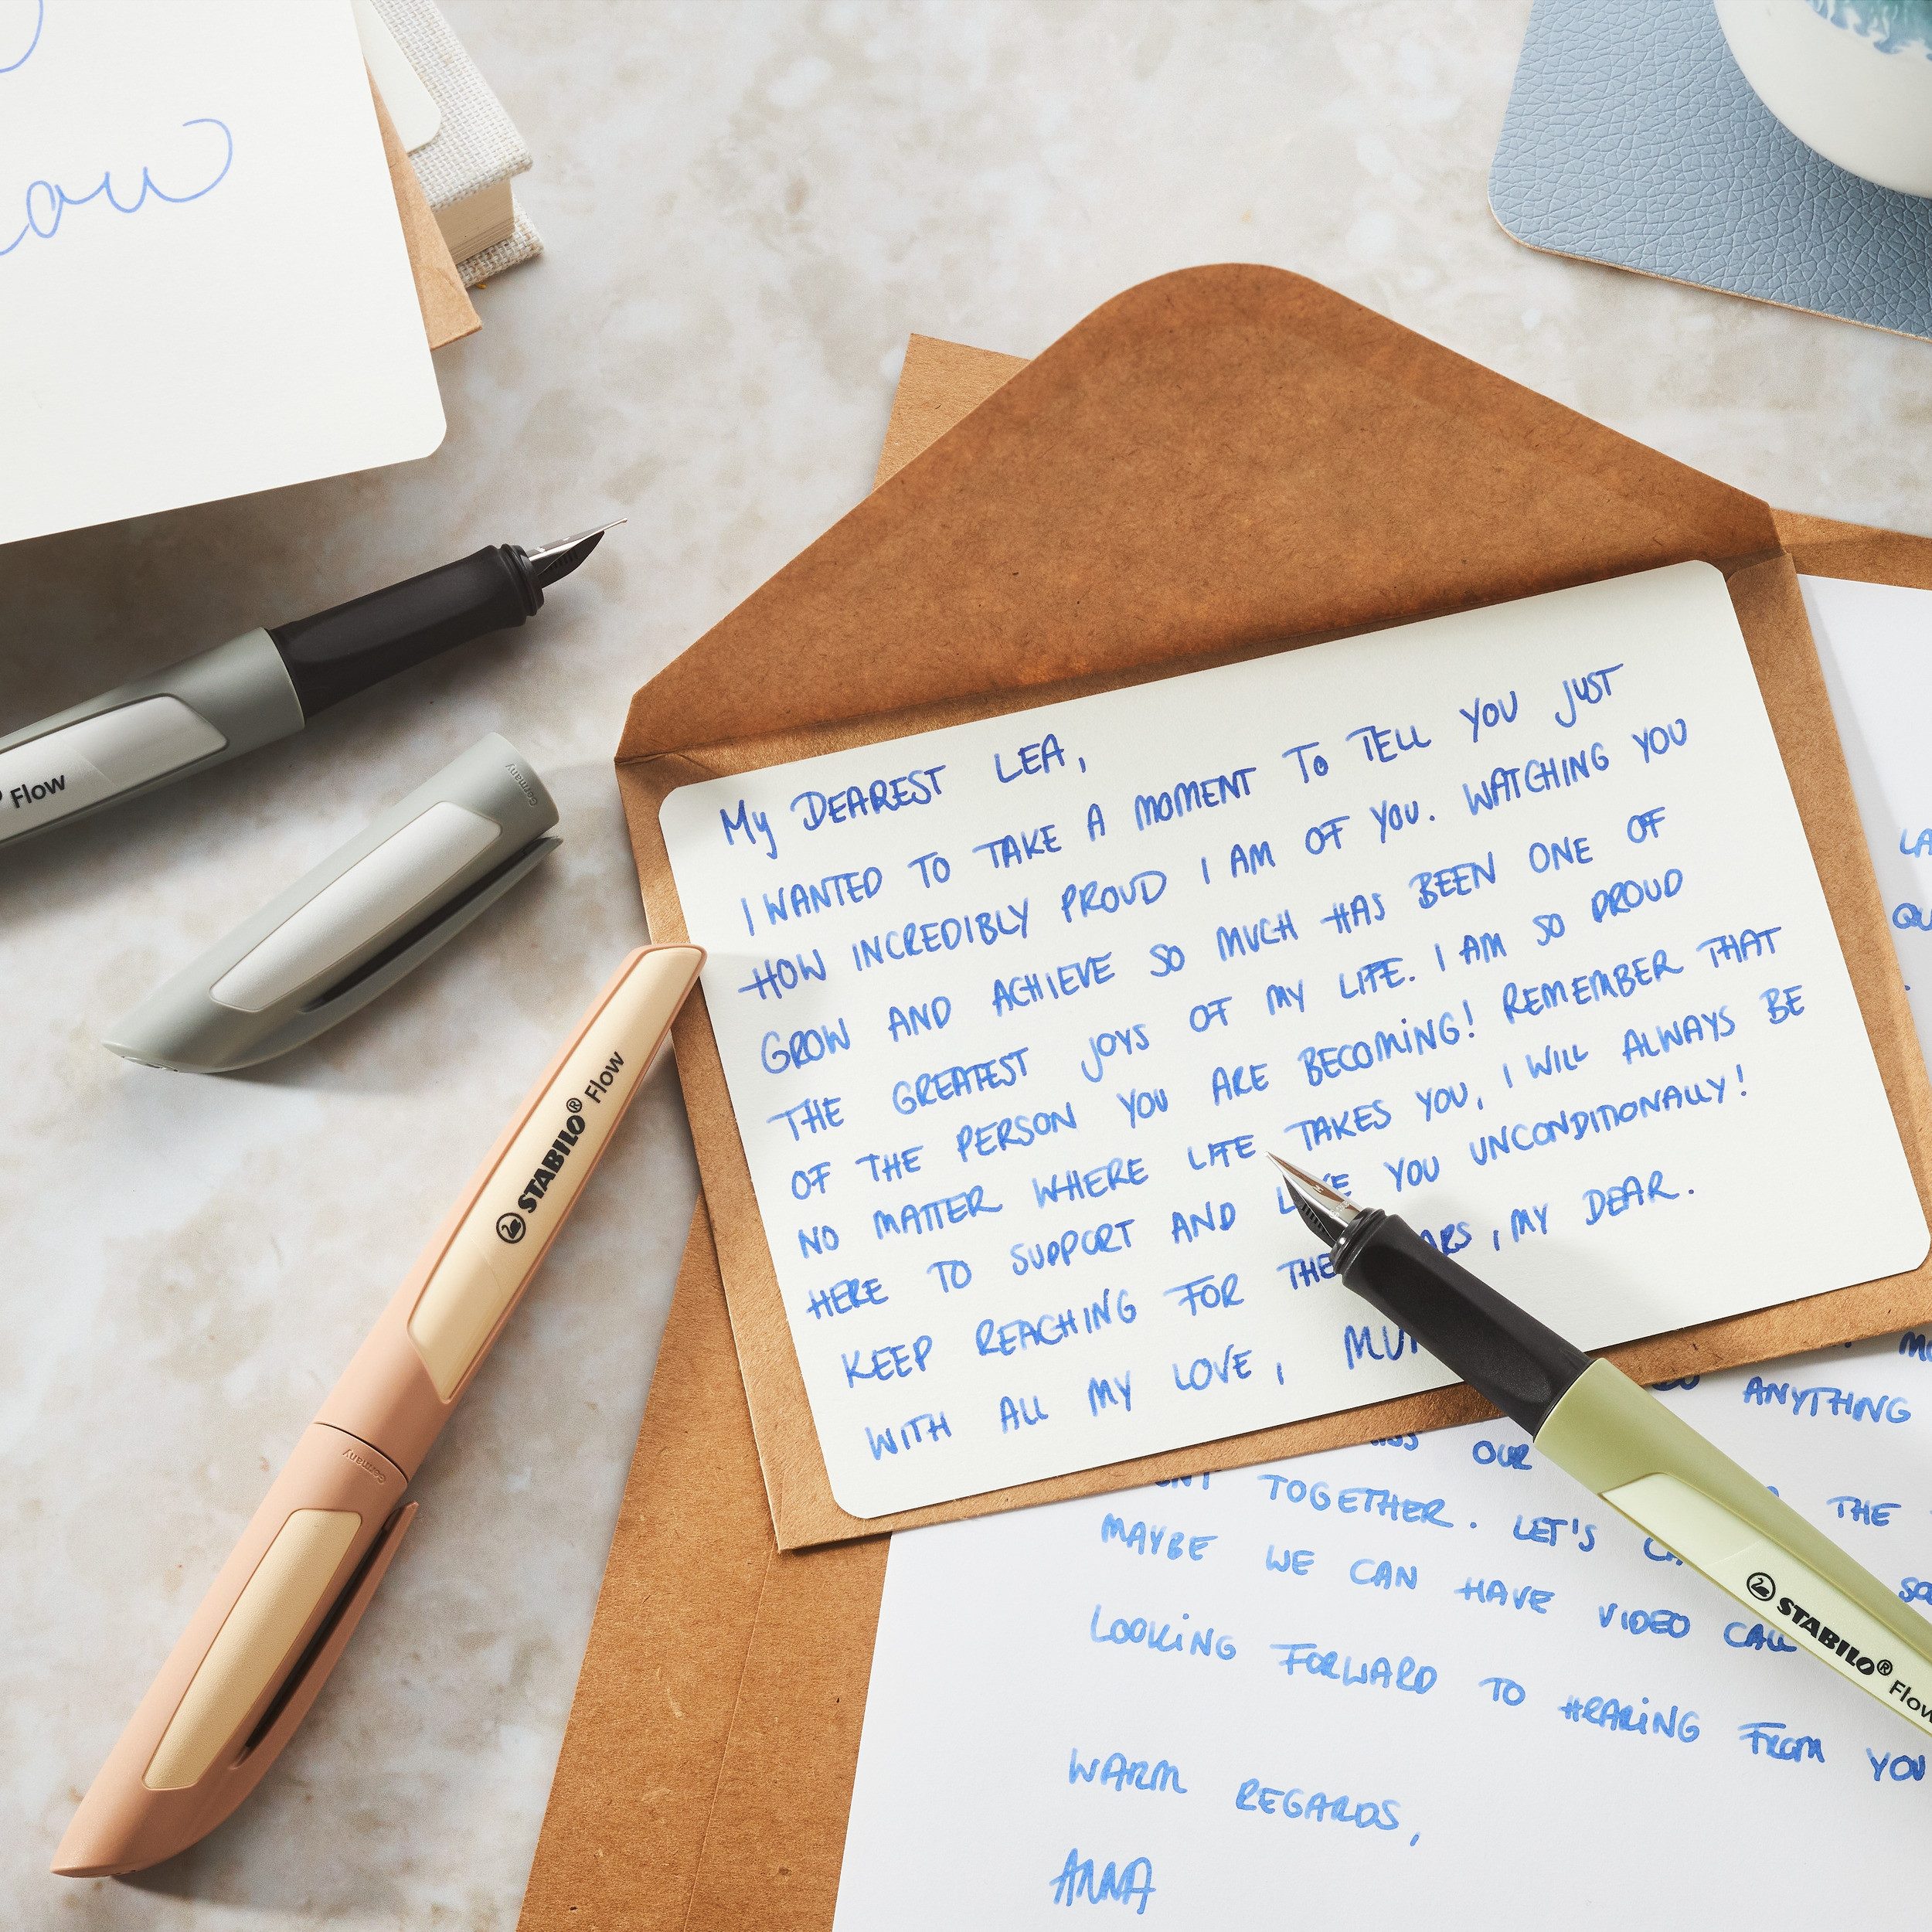 Flow
Germany
STABILO® Flow
Germany
My DEAREST LEA,
I WANTED TO TAKE A MOMENT TO TELL YOU JUST
HOW INCREDIBLY PROUD I AM OF YOU. WATCHING YOU
GROW AND ACHIEVE SO MUCH HAS BEEN ONE OF
THE GREATEST JOYS OF MY LIFE. I AM SO PROUD
OF THE PERSON YOU ARE BECOMING! REMEMBER THAT
NO MATTER WHERE LIFE TAKES YOU, I WILL ALWAYS BE
HERE TO SUPPORT AND YOU UNCONDITIONALLY!
KEEP REACHING FOR THE , MY DEAR.
WITH ALL MY LOVE,
STABILO® Flow
ANYTHING
OUR THE
TOGETHER. LET'S
MAYBE WE CAN HAVE VIDEO CALL
LOOKING FORWARD TO HEARING FROM YOU
WARM REGARDS,
ANNA